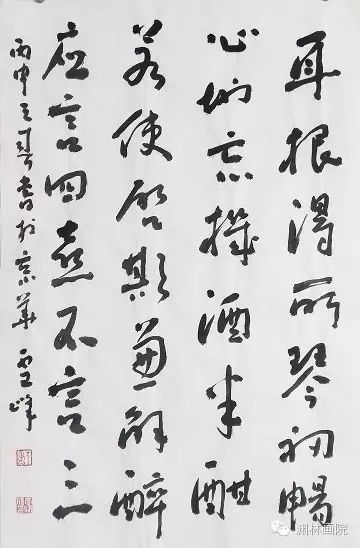 耳根得所琴初暢
心地忘機酒半酣
若使啓期兼解醉
應言四樂不言三
丙申之春書於京華 雪峰
渊林画院